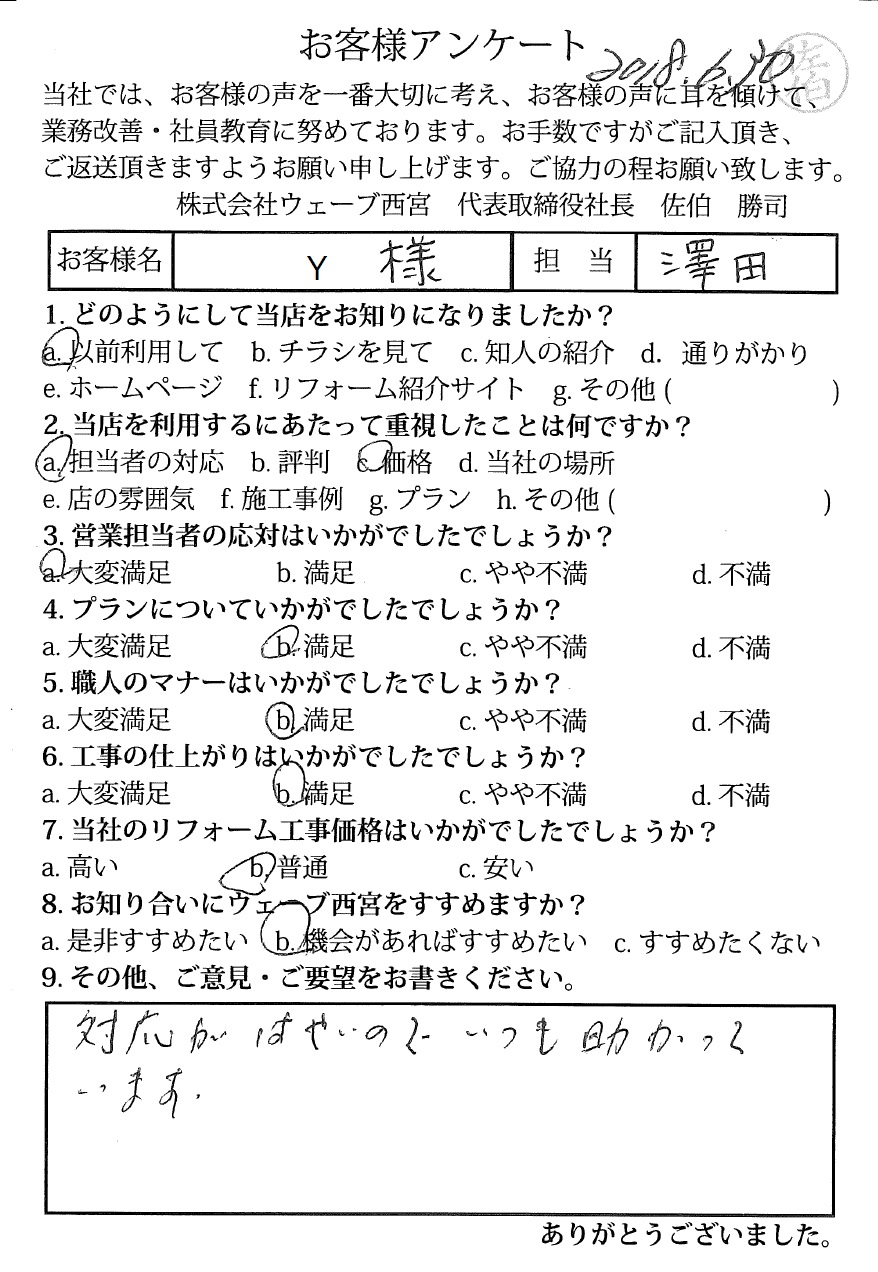 お客様アンケート
2018.6.30
佐伯
当社では、お客様の声を一番大切に考え、お客様の声に耳を傾けて、
業務改善・社員教育に努めております。お手数ですがご記入頂き、
ご返送頂きますようお願い申し上げます。ご協力の程お願い致します。
株式会社ウェーブ西宮 代表取締役社長 佐伯 勝司
お客様名 Y 様 担 当 澤田
1. どのようにして当店をお知りになりましたか？
a. 以前利用して b. チラシを見て c. 知人の紹介 d. 通りがかり
e. ホームページ f. リフォーム紹介サイト g. その他 ( )
2. 当店を利用するにあたって重視したことは何ですか？
a. 担当者の対応 b. 評判 c. 価格 d. 当社の場所
e. 店の雰囲気 f. 施工事例 g. プラン h. その他 ( )
3. 営業担当者の応対はいかがでしたでしょうか？
a. 大変満足 b. 満足 c. やや不満 d. 不満
4. プランについていかがでしたでしょうか？
a. 大変満足 b. 満足 c. やや不満 d. 不満
5. 職人のマナーはいかがでしたでしょうか？
a. 大変満足 b. 満足 c. やや不満 d. 不満
6. 工事の仕上がりはいかがでしたでしょうか？
a. 大変満足 b. 満足 c. やや不満 d. 不満
7. 当社のリフォーム工事価格はいかがでしたでしょうか？
a. 高い b. 普通 c. 安い
8. お知り合いにウェーブ西宮をすすめますか？
a. 是非すすめたい b. 機会があればすすめたい c. すすめたくない
9. その他、ご意見・ご要望をお書きください。
対応がはやいので いつも助かって
います.
ありがとうございました。